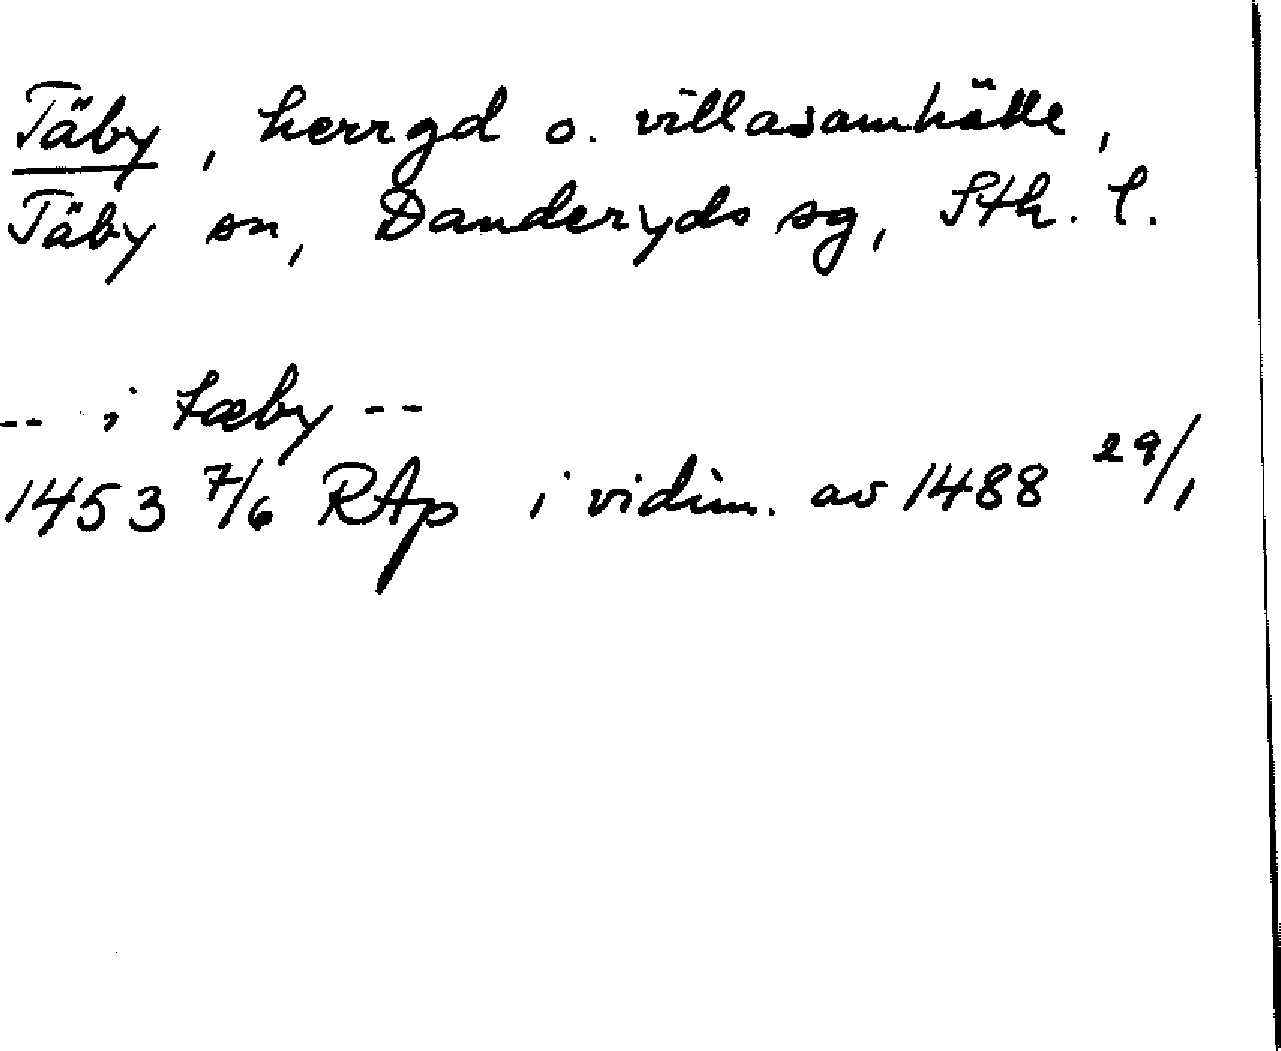 Täby, herrgd o. villasamhälle,
Täby sn, Danderyds sg, Sth. l.
-- i tæby --
1453 7/6 RAp i vidim. av 1488 29/1